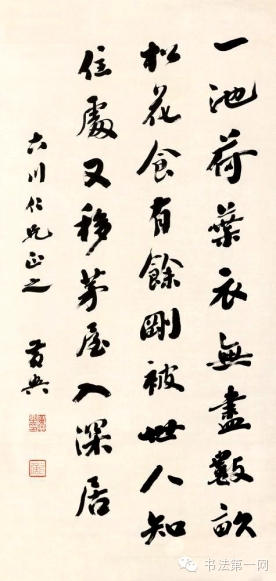 一池荷葉衣無盡數畝
松花食有餘剛被世人知
住處又移茅屋入深居
六川仁兄正之 黃興
书法第一网